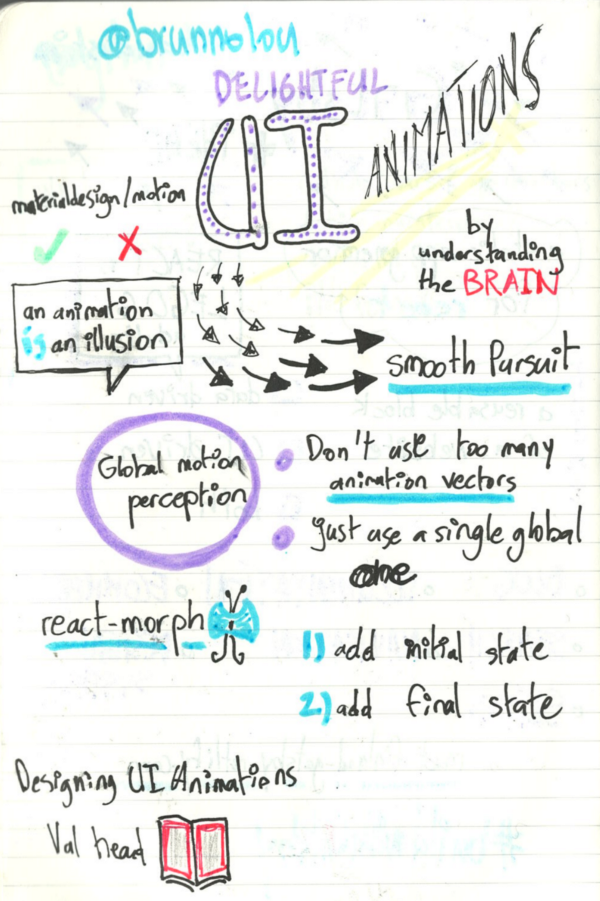 @brunnolou
DELIGHTFUL
UI
ANIMATIONS
materialdesign/motion
by
understanding
the BRAIN
an animation
is an illusion
smooth Pursuit
Global motion
perception
Don't use too many
animation vectors
just use a single global
one
react-morph
1) add initial state
2) add final state
Designing UI Animations
Val head